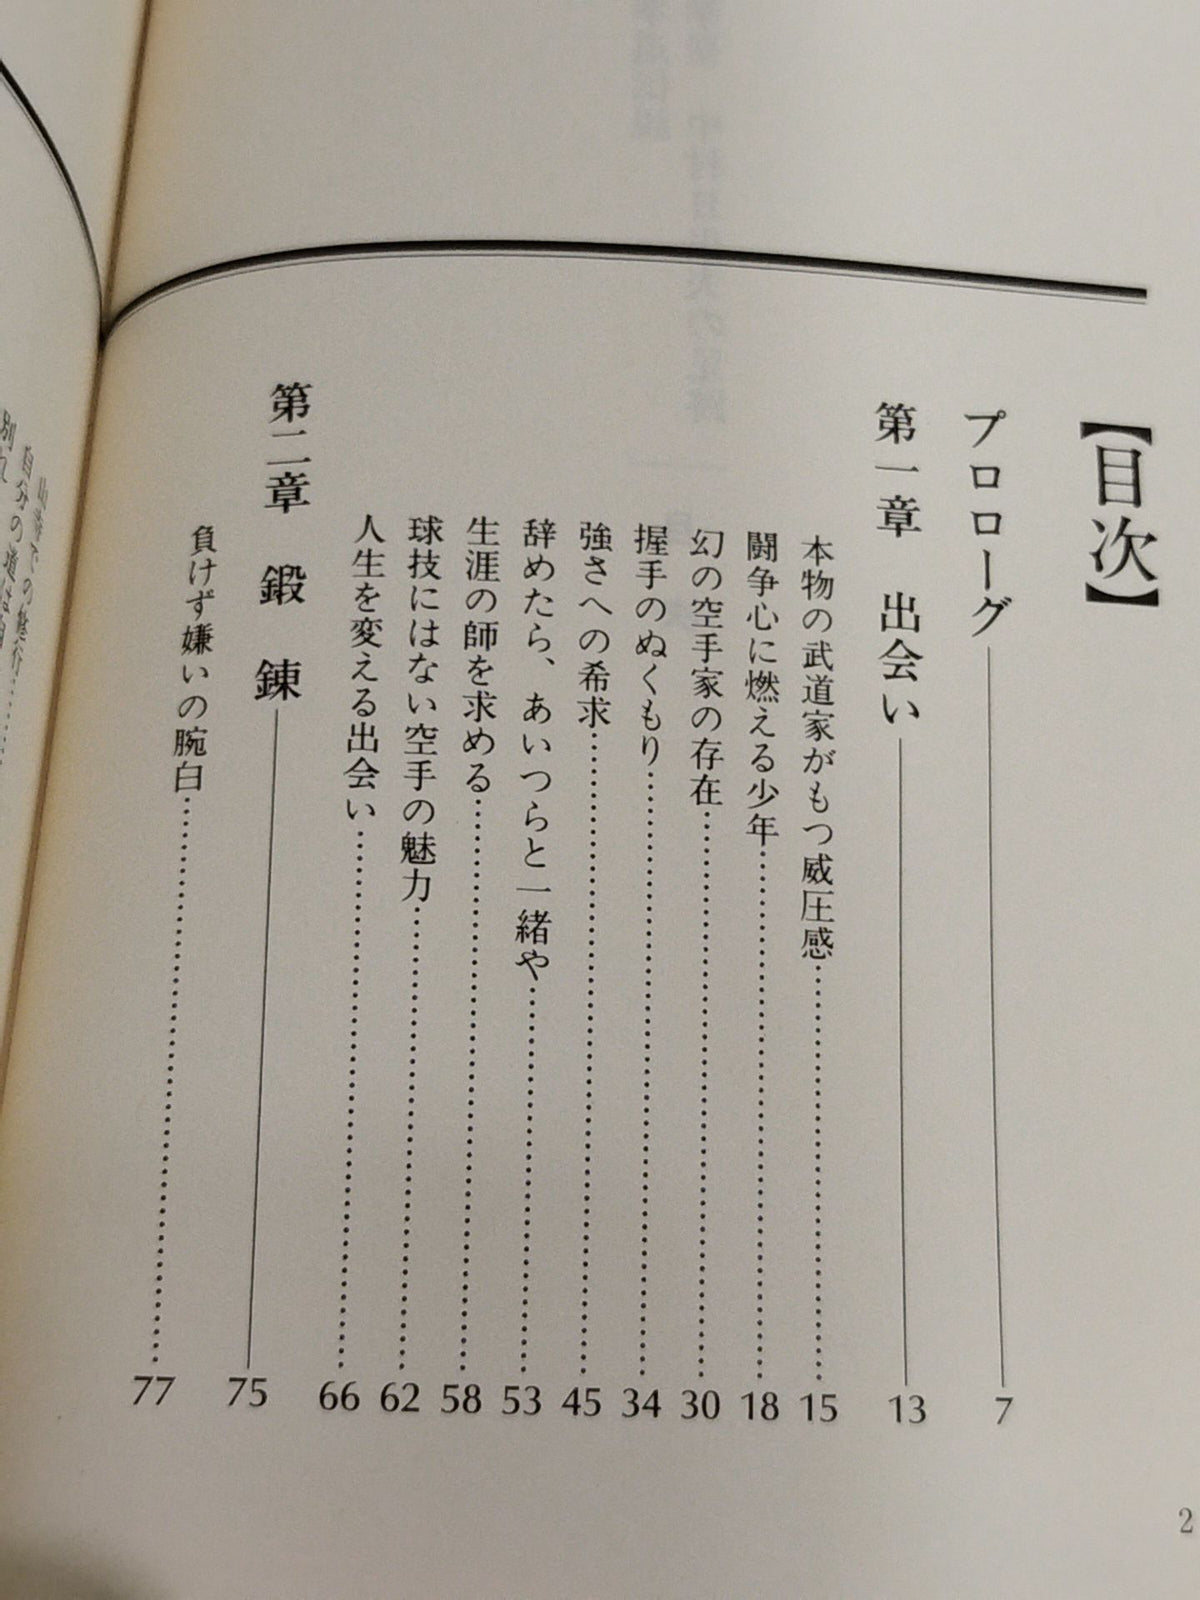 【目次】
プロローグ 7
第一章 出会い 13
本物の武道家がもつ威圧感 15
闘争心に燃える少年 18
幻の空手家の存在 30
握手のぬくもり 34
強さへの希求 45
辞めたら、あいつらと一緒や 53
生涯の師を求める 58
球技にはない空手の魅力 62
人生を変える出会い 66
第二章 鍛 錬 75
負けず嫌いの腕白 77
2